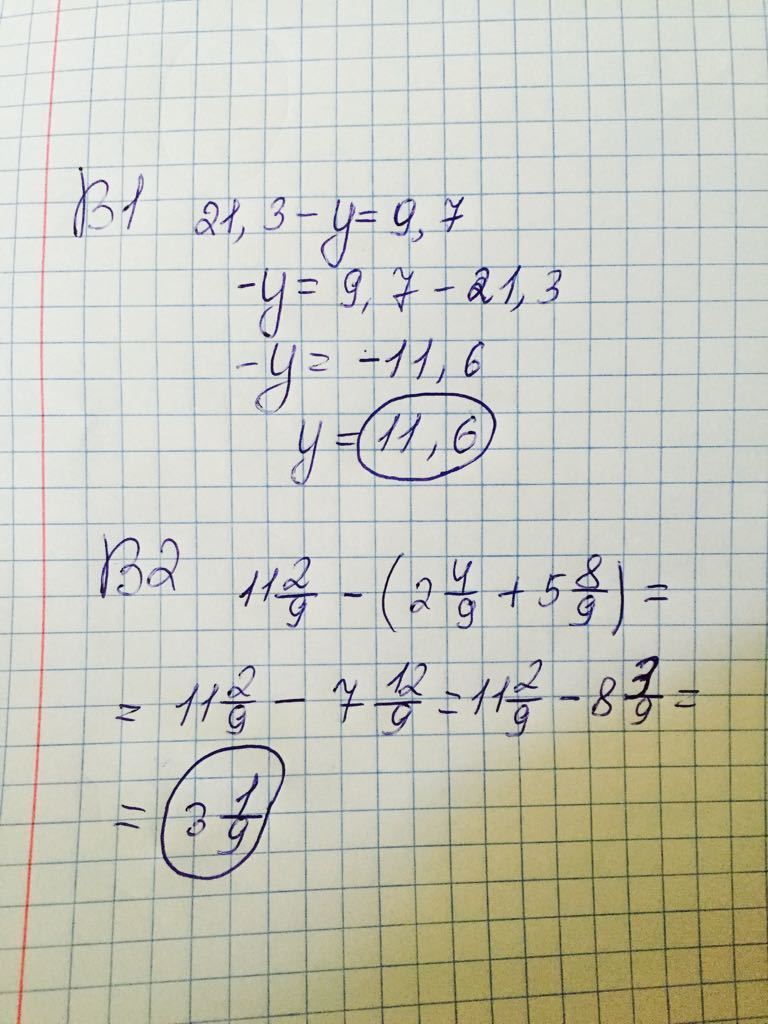 В1 21,3 - y = 9,7
-y = 9,7 - 21,3
-y = -11,6
y = 11,6
В2 11 2/9 - (2 4/9 + 5 8/9) =
= 11 2/9 - 7 12/9 = 11 2/9 - 8 3/9 =
= 3 1/9